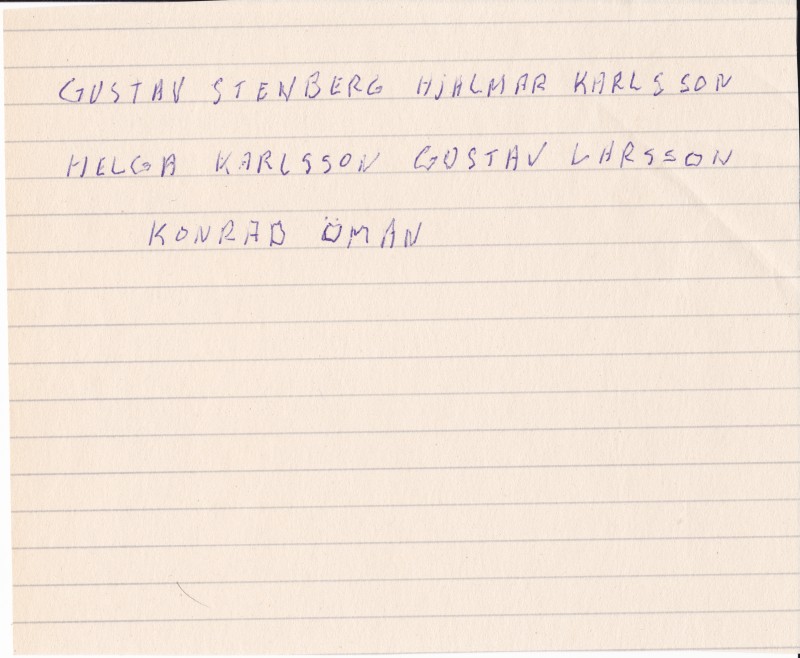 GUSTAV STENBERG HJALMAR KARLSSON
HELGA KARLSSON GUSTAV LARSSON
KONRAD ÖMAN